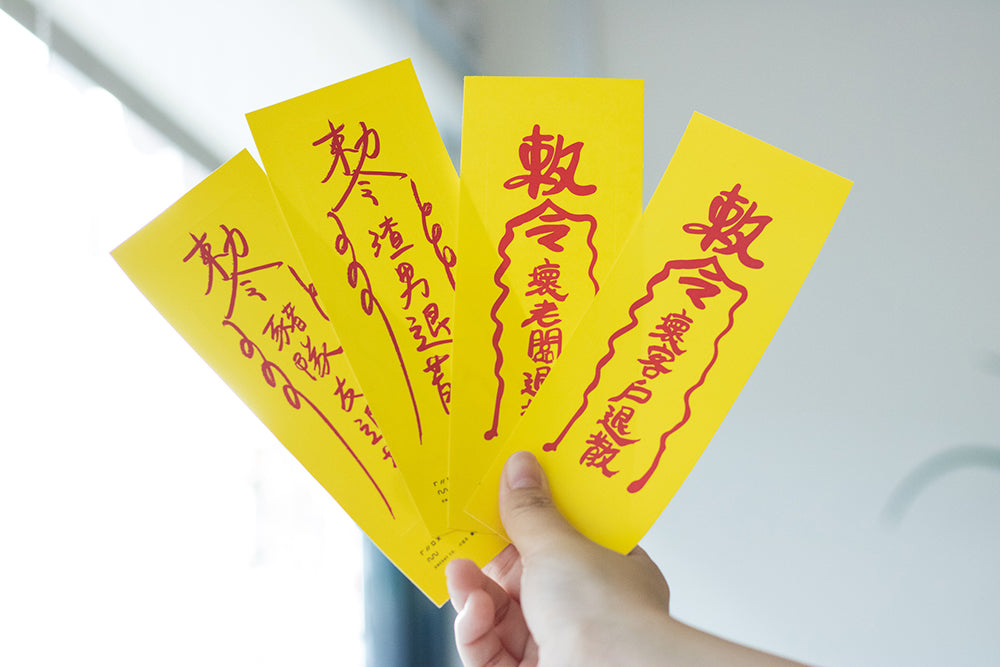 敕令
豬隊友退
敕令
渣男退散
敕令
壞老闆退散
敕令
壞客戶退散